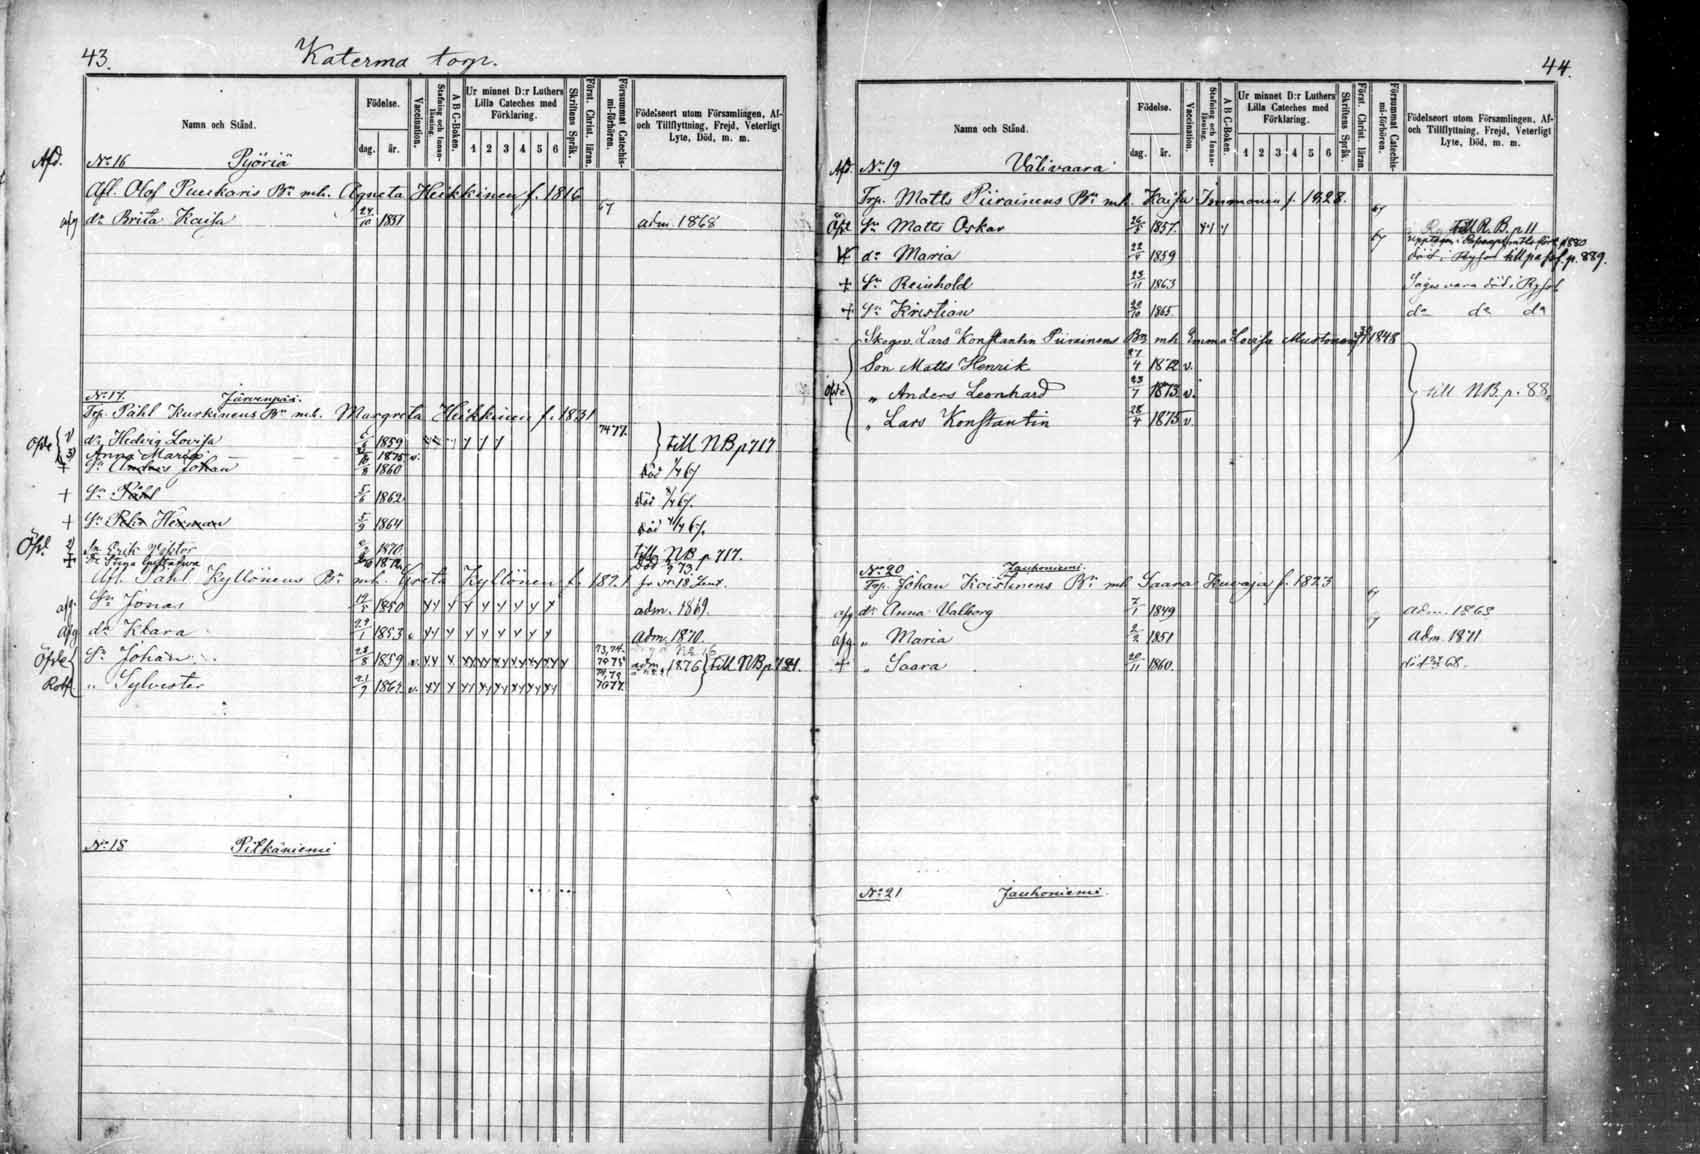 43. Katerma torp.
Namn och Stånd.
Födelse.
dag. år.
Vaccination.
Stafning och Innan-läsning.
A B C-Boken.
Ur minnet D:r Luthers Lilla Cateches med Förklaring.
1 2 3 4 5 6
Skriftens Språk.
Först. Christ. läran.
Försummat Catechis-mi-förhören.
Födelseort utom Församlingen, Af- och Tillflyttning, Frejd, Veterligt Lyte, Död, m. m.
Afd. No 16 Pyöriä
Afl. Olof Puukaris Bn mh. Agneta Heikkinen f. 1816
afg dr Brita Kaisa 24/10 1851 67 adm. 1868
No 17. Järvenpää.
Trp. Påhl Kurkinens Bn mh. Margreta Heikkinen f. 1831
Öfde 1) dr Hedvig Lovisa 1859 7477. till NB p 717
3) Anna Maria 1875 v.
+ Sn Johan 1860 död 1/4 67
+ Sn Påhl 5/6 1862 död 67.
+ Sn Herman 5/9 1864 död 67.
Öfd. 2 Sn Erik Viktor 1870 till NB p 717.
+ Dr Stina Gustafva 1872 död 73.
Afl. Påhl Kyllönens Bn mh. Greta Kyllönen f. 1821 fr No 18
afg. Sn Jonas 1850 adm. 1869.
afg dr Klara 29/1 1853 adm. 1870.
Öfde Sn Johan 28/8 1859 v. 73,74. 7475 adm. 1876 till NB p 721.
" Sylvester 21/9 1862 v. 7677.
No 18 Pitkäniemi
44.
Namn och Stånd.
Födelse.
dag. år.
Vaccination.
Stafning och Innan-läsning.
A B C-Boken.
Ur minnet D:r Luthers Lilla Cateches med Förklaring.
1 2 3 4 5 6
Skriftens Språk.
Först. Christ. läran.
Försummat Catechis-mi-förhören.
Födelseort utom Församlingen, Af- och Tillflyttning, Frejd, Veterligt Lyte, Död, m. m.
Afd. No 19 Välivaara
Trp. Matts Piirainens Bn mh Kaisa Immonen f. 1828.
Öfd Sn Matts Oskar 1857. 67 till R. B. p 11
dr Maria 1859 67 p. 889.
+ Sn Reinhold 23/11 1863 Säges vara död i Ryssl
+ Sn Kristian 20/10 1865 do do do
Skogsv. Lars Konstantin Piirainens Bn mh Emma Lovisa Mustonen 1848
Son Matts Henrik 27/4 1872 v.
Öfde " Anders Leonhard 23/7 1873 v. till NB. p. 88.
" Lars Konstantin 28/4 1875 v
No 20 Jauhoniemi
Trp. Johan Koistinens Bn mh Saara Kuvaja f. 1823
afg dr Anna Valborg 7/1 1849 67 adm. 1863
afg. " Maria 2/2 1851 adm. 1871
+ " Saara 20/11 1860. död 68.
No 21 Jauhoniemi